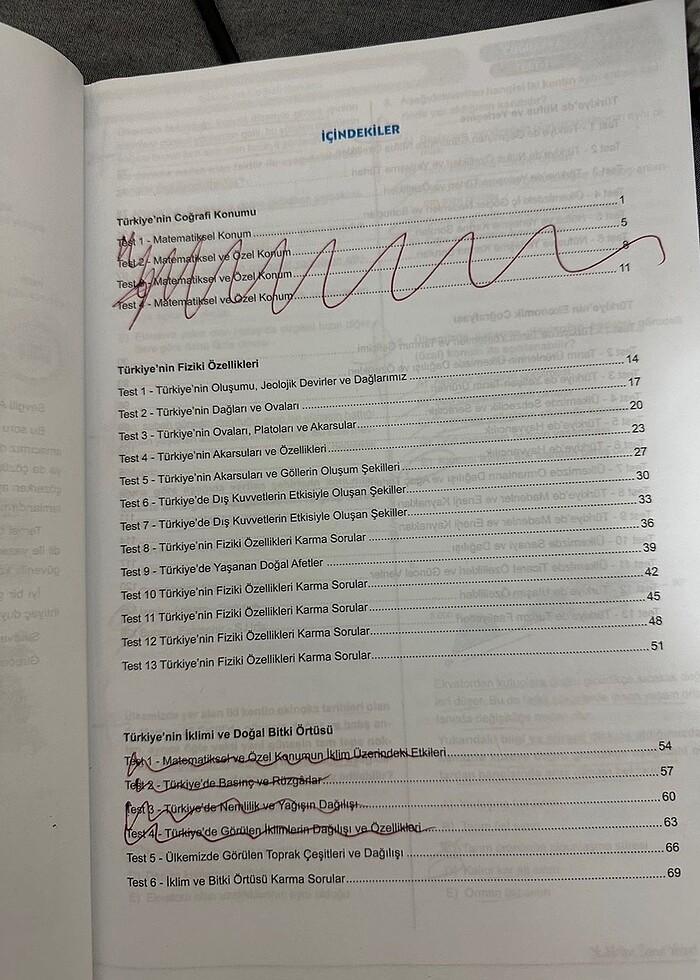 İÇİNDEKİLER
Türkiye'nin Coğrafi Konumu
Test 1 - Matematiksel Konum ........ 1
Test 2 - Matematiksel ve Özel Konum ........ 5
Test 3 - Matematiksel ve Özel Konum ........ 8
Test 4 - Matematiksel ve Özel Konum ........ 11
Türkiye'nin Fiziki Özellikleri
Test 1 - Türkiye'nin Oluşumu, Jeolojik Devirler ve Dağlarımız ........ 14
Test 2 - Türkiye'nin Dağları ve Ovaları ........ 17
Test 3 - Türkiye'nin Ovaları, Platoları ve Akarsular ........ 20
Test 4 - Türkiye'nin Akarsuları ve Özellikleri ........ 23
Test 5 - Türkiye'nin Akarsuları ve Göllerin Oluşum Şekilleri ........ 27
Test 6 - Türkiye'de Dış Kuvvetlerin Etkisiyle Oluşan Şekiller ........ 30
Test 7 - Türkiye'de Dış Kuvvetlerin Etkisiyle Oluşan Şekiller ........ 33
Test 8 - Türkiye'nin Fiziki Özellikleri Karma Sorular ........ 36
Test 9 - Türkiye'de Yaşanan Doğal Afetler ........ 39
Test 10 Türkiye'nin Fiziki Özellikleri Karma Sorular ........ 42
Test 11 Türkiye'nin Fiziki Özellikleri Karma Sorular ........ 45
Test 12 Türkiye'nin Fiziki Özellikleri Karma Sorular ........ 48
Test 13 Türkiye'nin Fiziki Özellikleri Karma Sorular ........ 51
Türkiye'nin İklimi ve Doğal Bitki Örtüsü
Test 1 - Matematiksel ve Özel Konumun İklim Üzerindeki Etkileri ........ 54
Test 2 - Türkiye'de Basınç ve Rüzgârlar ........ 57
Test 3 - Türkiye'de Nemlilik ve Yağışın Dağılışı ........ 60
Test 4 - Türkiye'de Görülen İklimlerin Dağılışı ve Özellikleri ........ 63
Test 5 - Ülkemizde Görülen Toprak Çeşitleri ve Dağılışı ........ 66
Test 6 - İklim ve Bitki Örtüsü Karma Sorular ........ 69